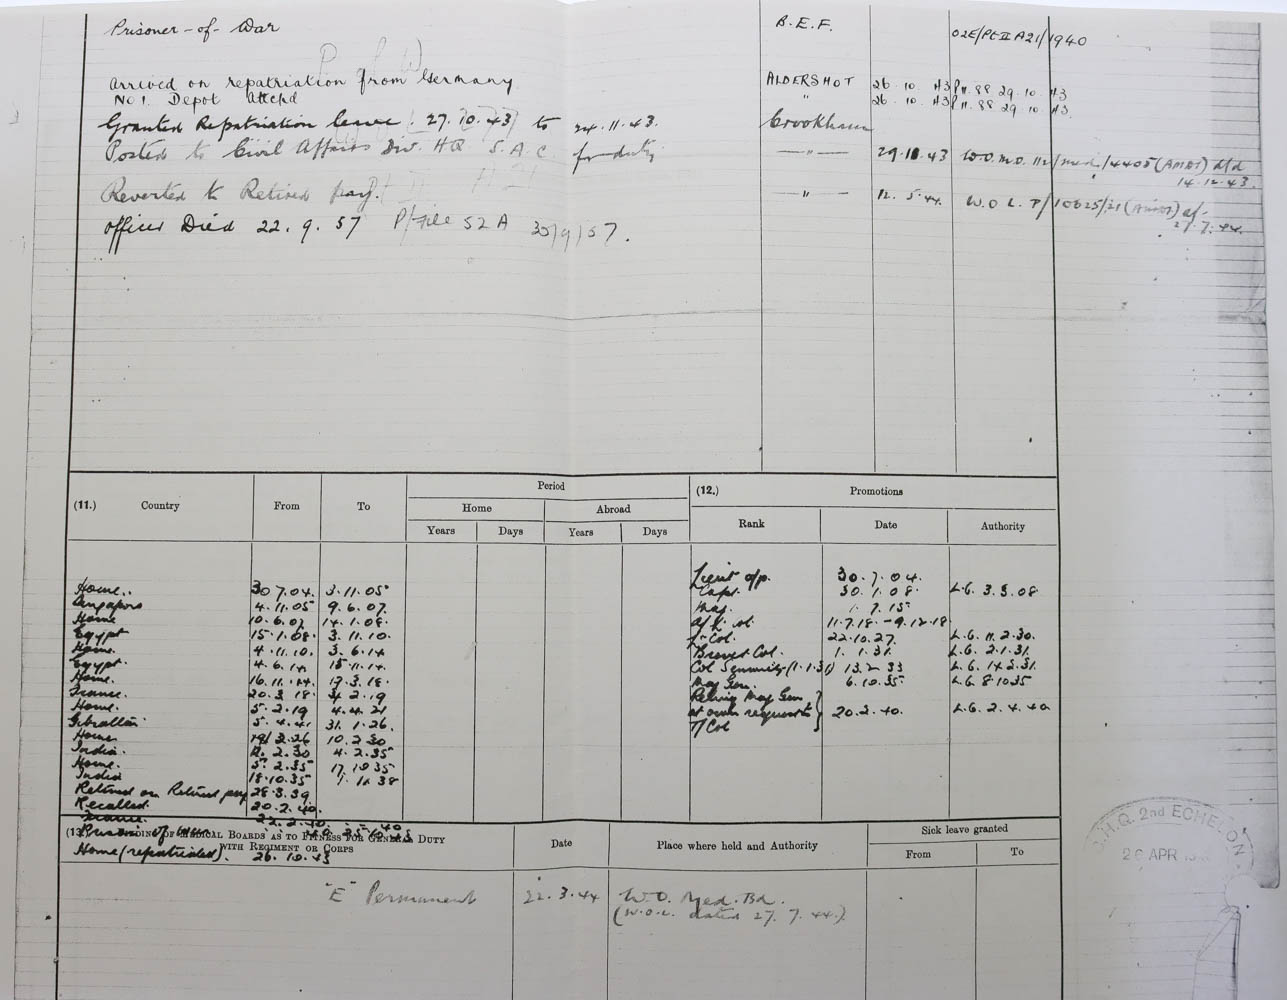 Prisoner-of-War B.E.F. O2E/PE II A21/1940
P of W
Arrived on repatriation from Germany ALDERSHOT 26.10.43 P11.88 29.10.43
No 1. Depot Attchd " 26.10.43 P11.88 29.10.43.
Granted Repatriation leave. 27.10.43 to 24.11.43. Crookham
Posted to Civil Affairs Div. HQ S.A.C for duty —"— 29.11.43 W.O. M.O. 112/med/4405 (AMD1) dtd
14.12.43.
Reverted to Retired pay. —"— 12.5.44. W.O.L. P/10625/21 of
27.7.44.
Officer Died 22.9.57 P/File 52A 30/9/57.
(11.) Country From To Period
Home Abroad
Years Days Years Days
(12.) Promotions
Rank Date Authority
Home.. 30 7.04. 3.11.05
Singapore 4.11.05 9.6.07
Home 10.6.07 14.1.08.
Egypt 15.1.08. 3.11.10.
Home. 4.11.10. 3.6.14
Egypt. 4.6.14 15.11.14.
Home. 16.11.14. 19.3.18.
France. 20.3.18. 4.2.19
Home. 5.2.19 4.4.21
Gibraltar 5.4.21. 31.1.26.
Home 2.26 10.2.30
India. 2.30 4.2.35
Home. 5.2.35 17.10.35
India 18.10.35 7.11.38
Retired on Retired pay 28.3.39
Recalled. 20.2.40.
France. 22.2.40. 40
Prisoner of War 40 25.10.43
Home (repatriated). 26.10.43
Lieut 30.7.04.
Capt. 30.1.08. L.G. 3.3.08
Maj. 1.7.15
A/Lt. Col. 11.7.18.-9.12.18
Lt Col. 22.10.27. L.G. 11.2.30.
Brevet Col. 1.1.31. L.G. 2.1.31.
Col Seniority (1.1.31) 13.2.33 L.G. 14.2.31.
Maj Gen. 6.10.35 L.G. 8.10.35
Retiring Maj Gen }
at own request } 20.2.40. L.G. 2.4.40
T/Col
(13.) Finding of Medical Boards as to Fitness for General Duty
with Regiment or Corps
Date Place where held and Authority Sick leave granted
From To
"E" Permanent 22.3.44 W.O. Med. Bd.
(W.O.L. dated 27.7.44.)
G.H.Q. 2nd ECHELON
26 APR